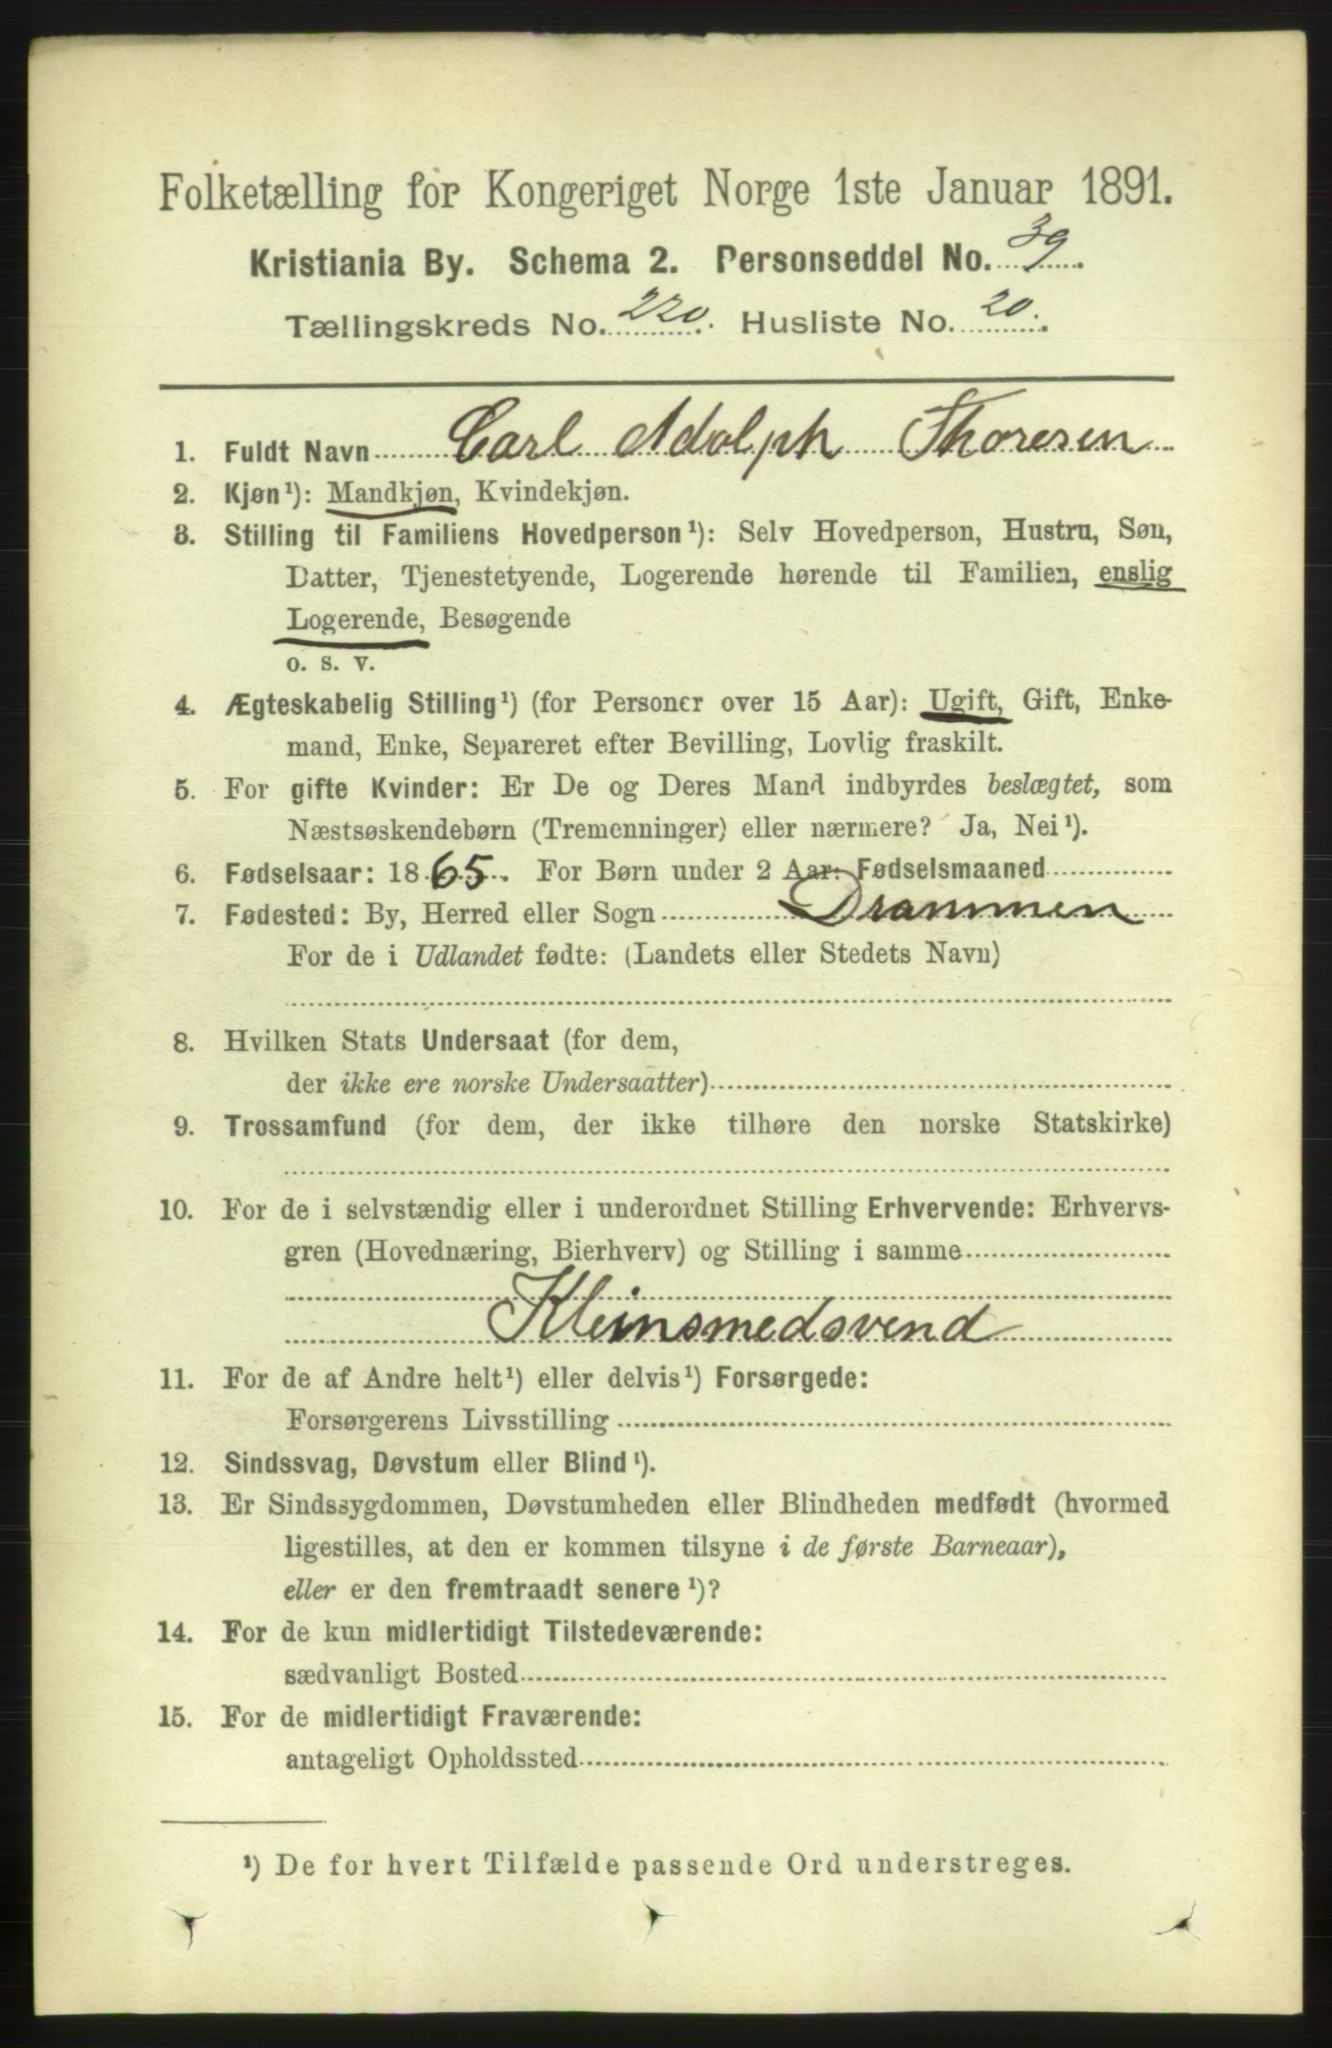 Folketælling for Kongeriget Norge 1ste Januar 1891.
Kristiania By. Schema 2. Personseddel No. 39.
Tællingskreds No. 220. Husliste No. 20.
1. Fuldt Navn Carl Adolph Thoresen
2. Kjøn¹): Mandkjøn, Kvindekjøn.
3. Stilling til Familiens Hovedperson¹): Selv Hovedperson, Hustru, Søn,
Datter, Tjenestetyende, Logerende hørende til Familien, enslig
Logerende, Besøgende
o. s. v.
4. Ægteskabelig Stilling¹) (for Personer over 15 Aar): Ugift, Gift, Enke-
mand, Enke, Separeret efter Bevilling, Lovlig fraskilt.
5. For gifte Kvinder: Er De og Deres Mand indbyrdes beslægtet, som
Næstsøskendebørn (Tremenninger) eller nærmere? Ja, Nei¹).
6. Fødselsaar: 1865. For Børn under 2 Aar: Fødselsmaaned
7. Fødested: By, Herred eller Sogn Drammen
For de i Udlandet fødte: (Landets eller Stedets Navn)
8. Hvilken Stats Undersaat (for dem,
der ikke ere norske Undersaatter)
9. Trossamfund (for dem, der ikke tilhøre den norske Statskirke)
10. For de i selvstændig eller i underordnet Stilling Erhvervende: Erhvervs-
gren (Hovednæring, Bierhverv) og Stilling i samme
Kleinsmedsvend
11. For de af Andre helt¹) eller delvis¹) Forsørgede:
Forsørgerens Livsstilling
12. Sindssvag, Døvstum eller Blind¹).
13. Er Sindssygdommen, Døvstumheden eller Blindheden medfødt (hvormed
ligestilles, at den er kommen tilsyne i de første Barneaar),
eller er den fremtraadt senere¹)?
14. For de kun midlertidigt Tilstedeværende:
sædvanligt Bosted
15. For de midlertidigt Fraværende:
antageligt Opholdssted
¹) De for hvert Tilfælde passende Ord understreges.